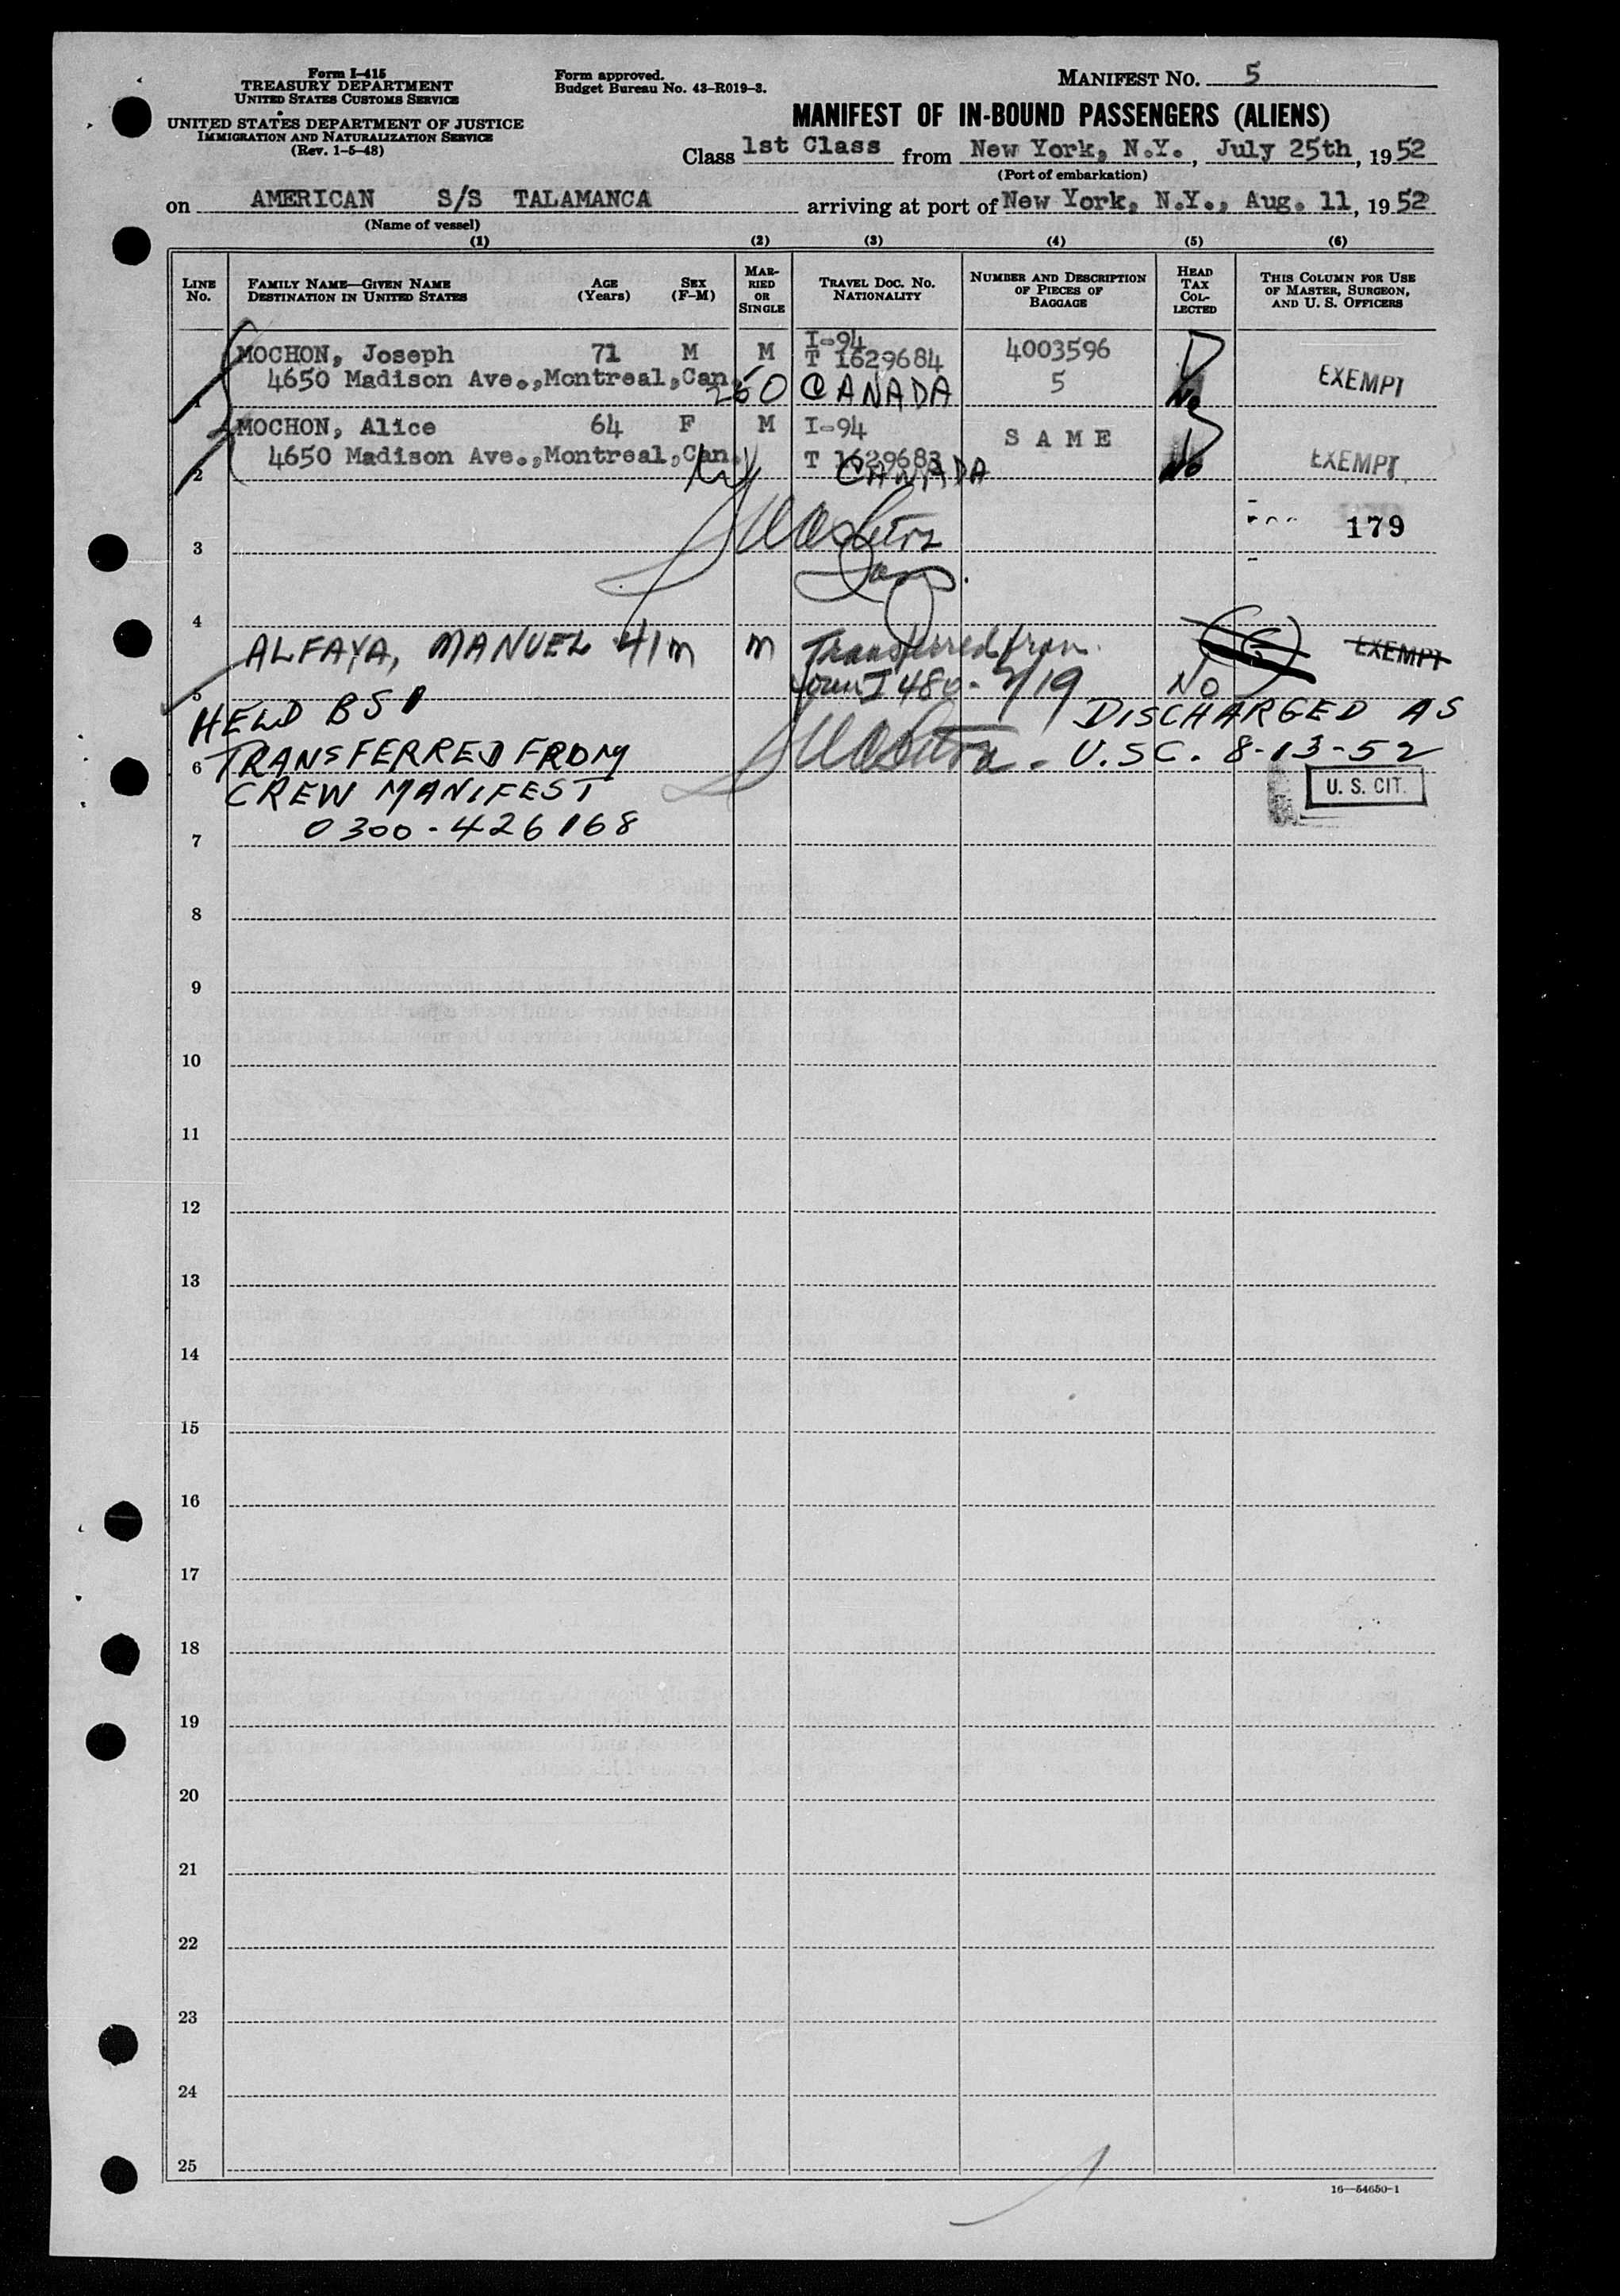 Form I-415
TREASURY DEPARTMENT
UNITED STATES CUSTOMS SERVICE
UNITED STATES DEPARTMENT OF JUSTICE
IMMIGRATION AND NATURALIZATION SERVICE
(Rev. 1-5-48)
Form approved.
Budget Bureau No. 43-R019-3.
MANIFEST No. 5
MANIFEST OF IN-BOUND PASSENGERS (ALIENS)
Class 1st Class from New York, N.Y., July 25th, 1952
(Port of embarkation)
on AMERICAN S/S TALAMANCA arriving at port of New York, N.Y., Aug. 11, 1952
(Name of vessel)
(1) (2) (3) (4) (5) (6)
LINE No.
FAMILY NAME—GIVEN NAME
DESTINATION IN UNITED STATES
AGE (Years)
SEX (F-M)
MARRIED OR SINGLE
TRAVEL DOC. NO. NATIONALITY
NUMBER AND DESCRIPTION OF PIECES OF BAGGAGE
HEAD TAX COLLECTED
THIS COLUMN FOR USE OF MASTER, SURGEON, AND U. S. OFFICERS
MOCHON, Joseph 71 M M I-94 T 1629684 4003596
1 4650 Madison Ave.,Montreal,Can. 260 CANADA 5 No EXEMPT
MOCHON, Alice 64 F M I-94 SAME
2 4650 Madison Ave.,Montreal,Can. T 1629683 CANADA No EXEMPT
179
3
4
ALFAYA, MANUEL 41 m m Transferred from EXEMPT
5 form I 480 - No
HELD BSI DISCHARGED AS
6 TRANSFERRED FROM U.S.C. 8-13-52
CREW MANIFEST U. S. CIT.
7 0300-426168
8
9
10
11
12
13
14
15
16
17
18
19
20
21
22
23
24
25
16—54650-1